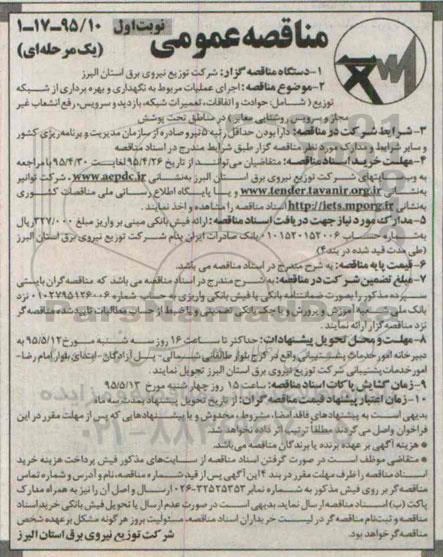 مناقصه عمومی
نوبت اول
۱-۱۷-۹۵/۱۰
(یک مرحله‌ای)
۱-دستگاه مناقصه گزار: شرکت توزیع نیروی برق استان البرز
۲-موضوع مناقصه: اجرای عملیات مربوط به نگهداری و بهره برداری از شبکه
توزیع (شامل: حوادث و اتفاقات، تعمیرات شبکه، بازدید و سرویس، رفع انشعاب غیر
مجاز و سرویس روشنایی معابر) در مناطق تحت پوشش
۳-شرایط شرکت در مناقصه: دارا بودن حداقل رتبه ۵ نیرو صادره از سازمان مدیریت و برنامه‌ریزی کشور
و سایر شرایط و مدارک مورد نظر مناقصه گزار طبق شرایط مندرج در اسناد مناقصه
۴-مهلت خرید اسناد مناقصه: متقاضیان می‌توانند از تاریخ ۹۵/۴/۲۶ لغایت ۹۵/۴/۳۰ با مراجعه
به وب‌سایتهای شرکت توزیع نیروی برق استان البرز به‌نشانی www.aepdc.ir، شرکت توانیر
به‌نشانی www.tender.tavanir.org.ir و یا پایگاه اطلاع رسانی ملی مناقصات کشوری
به‌نشانی http://iets.mporg.ir اسناد مناقصه را مشاهده و اخذ نمایند.
۵-مدارک مورد نیاز جهت دریافت اسناد مناقصه: ارائه فیش بانکی مبنی بر واریز مبلغ ۳۲۷/۰۰۰ ریال
به‌شماره حساب ۰۱۰۱۵۲۰۱۵۲۰۰۶ بانک صادرات ایران بنام شرکت توزیع نیروی برق استان البرز
(طی مدت قید شده در بند ۴)
۶-قیمت پایه مناقصه: به شرح مندرج در اسناد مناقصه می باشد.
۷-مبلغ تضمین شرکت در مناقصه: به شرح مندرج در اسناد مناقصه می باشد که مناقصه گران بایستی
سپرده مذکور را بصورت ضمانتنامه بانکی یا فیش بانکی واریزی به حساب شماره ۰۱۰۲۷۹۵۱۲۶۰۰۶ نزد
بانک ملی شعبه آموزش و پرورش و یا چک بانکی تضمینی و یا ضبط از حساب مطالبات تایید شده مناقصه گر
نزد مناقصه گزار ارائه نمایند.
۸-مهلت و محل تحویل پیشنهادات: حداکثر تا ساعت ۱۶ روز سه شنبه مورخ ۹۵/۵/۱۲ به
دبیرخانه امور خدمات پشتیبانی واقع در کرج بلوار طالقانی شمالی- پل آزادگان- ابتدای بلوار امام رضا-
امور خدمات پشتیبانی شرکت توزیع نیروی برق استان البرز تحویل نمایند.
۹-زمان گشایش پاکات اسناد مناقصه: ساعت ۱۵ روز چهارشنبه مورخ ۹۵/۵/۱۳
۱۰-زمان اعتبار پیشنهاد قیمت مناقصه گران: از تاریخ تحویل پیشنهاد بمدت سه ماه
بدیهی است به پیشنهادهای فاقد امضا، مشروط، مخدوش و یا پیشنهادهایی که پس از مهلت مقرر در این
فراخوان واصل می گردند مطلقا ترتیب اثر داده نخواهد شد.
* هزینه آگهی بر عهده برنده یا برندگان مناقصه می‌باشد.
* متقاضی موظف است در صورت گرفتن اسناد مناقصه از سایت‌های مذکور فیش پرداخت هزینه خرید
اسناد مناقصه را ظرف مهلت مقرر در بند ۴ این آگهی پس از قید شماره مناقصه، نام و آدرس و شماره تماس
مناقصه‌گر بر روی فیش مذکور به شماره نمابر ۳۲۵۲۵۳۵۳-۰۲۶ ارسال و اصل آن را نیز به همراه مدارک
پاکت (ب) اسناد مناقصه ارسال نماید، بدیهی است در صورت عدم ارسال یا تحویل فیش بانکی خرید اسناد
مناقصه و ثبت‌نام مناقصه گر در لیست خریداران اسناد مناقصه، مسئولیت بروز هرگونه مشکل بر عهده شخص
مناقصه‌گر خواهد بود.
شرکت توزیع نیروی برق استان البرز